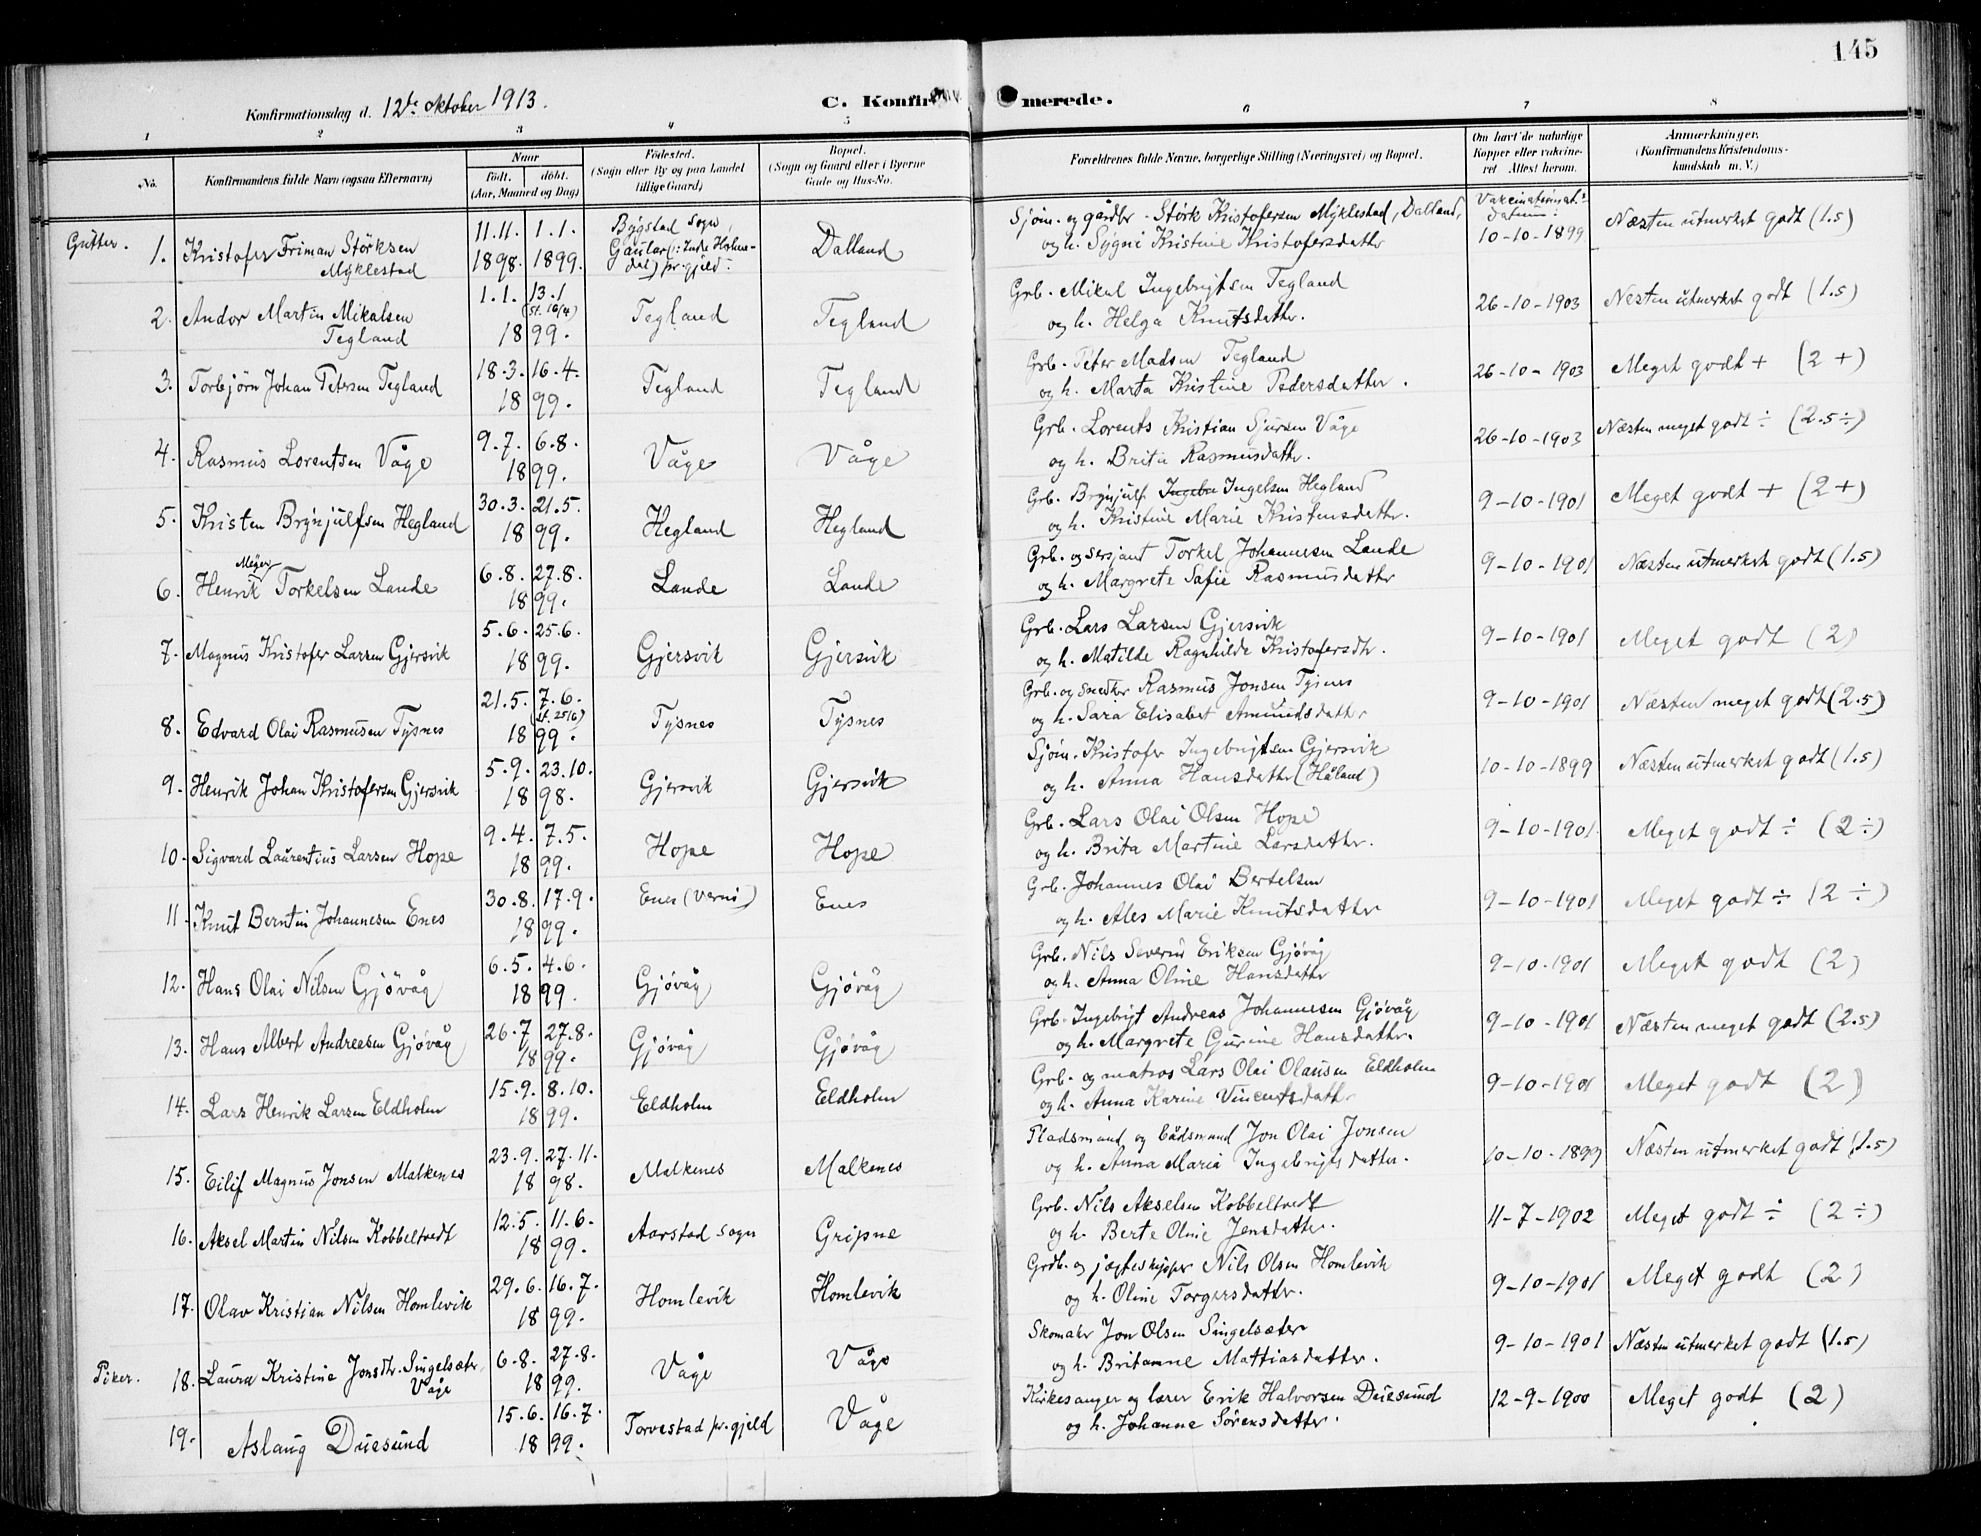 145
Konfirmationsdag d. 12te oktober 1913.
C. Konfirmerede.
1 2 3 4 5 6 7 8
No.
Konfirmandens fulde Navn (ogsaa Efternavn)
Naar
födt. döbt.
(Aar, Maaned og Dag)
Födested.
(Sogn eller By og paa Landet tillige Gaard)
Bopæl.
(Sogn og Gaard eller i Byerne Gade og Hus-No.
Forældrenes fulde Navne, borgerlige Stilling (Næringsvei) og Bopæl.
Om havt de naturlige Kopper eller vakcineret. Attest herom.
Anmærkninger.
(Konfirmandens Kristendomskundskab m. V.)
Gutter. 1. Kristofer Friman Störksen Myklestad 11.11. 1898. 1.1. 1899. Bygstad sogn, Gaular (: Indre Holmedal) pr.gjeld. Dalland
Sjöm. og gårdbr. Störk Kristofersen Myklestad, Dalland,
og h. Sygni Kristine Kristofersdatter
Vakcinationsat. datum: 10-10-1899 Næsten utmerket godt (1.5)
2. Andor Martin Mikalsen Tegland 1.1. 13.1 (st. 16/4) 1899. Tegland Tegland
Grb. Mikal Ingebrigtsen Tegland
og h. Helga Knutsdatter.
26-10-1903 Nesten utmerket godt (1.5)
3. Torbjörn Johan Petersen Tegland 18.3. 16.4. 1899. Tegland Tegland
Grb. Peter Madsen Tegland
og h. Marta Kristine Pedersdatter.
26-10-1903 Meget godt + (2+)
4. Rasmus Lorentsen Våge 9.7. 6.8. 1899. Våge Våge
Grb. Lorents Kristian Sjursen Våge
og h. Brita Rasmusdattr.
26-10-1903 Næsten meget godt ÷ (2.5÷)
5. Kristen Brynjulfsen Hegland 30.3. 21.5. 1899. Hegland Hegland
Grb. Brynjulf Ingebr Ingelsen Hegland
og h. Kristine Marie Kristensdattr.
9-10-1901 Meget godt + (2+)
6. Henrik Meyer Torkelsen Lande 6.8. 27.8. 1899. Lande Lande
Grb. og sersjant Torkel Johannesen Lande
og h. Margrete Safie Rasmusdattr
9-10-1901 Næsten utmerket godt (1.5)
7. Magnus Kristofer Larsen Gjersvik 5.6. 25.6. 1899. Gjersvik Gjersvik
Grb. Lars Larsen Gjersvik
og h. Matilde Ragnhilde Kristofersdtr.
9-10-1901 Meget godt (2)
8. Edvard Olai Rasmusen Tysnes 21.5. 7.6. (st. 25/6) 1899. Tysnes Tysnes
Grb. og snedker Rasmus Jonsen Tysnes
og h. Saria Elisabet Amundsdatter
9-10-1901 Næsten meget godt (2.5)
9. Henrik Johan Kristofersen Gjersvik 5.9. 23.10. 1898. Gjersvik Gjersvik
Sjöm. Kristofer Ingebrigtsen Gjersvik
og h. Anna Hansdatter (Håland)
10-10-1899 Næsten utmerket godt (1.5)
10. Sigvard Laurentius Larsen Hope 9.4. 7.5. 1899. Hope Hope
Grb. Lars Olai Olsen Hope
og h. Brita Martine Larsdatter.
9-10-1901. Meget godt ÷ (2÷)
11. Knut Berntin Johannesen Enes 30.8. 17.9. 1899. Enes (Vernö) Enes
Grb. Johannes Olai Bertelsen
og h. Ales Marie Knutsdatter
9-10-1901 Meget godt ÷ (2÷)
12. Hans Olai Nilsen Gjövåg 6.5. 4.6. 1899. Gjövåg Gjövåg
Grb. Nils Severin Eriksen Gjövåg
og h. Anna Oline Hansdatter
9-10-1901 Meget godt (2)
13. Hans Albert Andreasen Gjövåg 26.7 27.8. 1899. Gjövåg Gjövåg
Grb. Ingebrigt Andreas Johannesen Gjövåg
og h. Margrete Gurine Hansdatter.
9-10-1901 Næsten meget godt (2.5)
14. Lars Henrik Larsen Eldholm 15.9. 8.10. 1899. Eldholm Eldholm
Grb. og matros Lars Olai Olausen Eldholm
og h. Anna Karine Vincentsdatter
9-10-1901 Meget godt (2)
15. Eilif Magnus Jonsen Malkenes 23.9. 27.11. 1898. Malkenes Malkenes
Pladsmand og bådsmand Jon Olai Jonsen
og h. Anna Maria Ingebrigtsdatter.
10-10-1899 Næsten utmerket godt (1.5)
16. Aksel Martin Nilsen Kobbeltvedt 12.5. 11.6. 1899. Aarstad sogn Gripne
Grb. Nils Akselsen Kobbeltvedt
og h. Berte Oline Jensdatter.
11-7-1902 Meget godt ÷ (2÷)
17. Olav Kristian Nilsen Homlevik 29.6. 16.7. 1899. Homlevik Homlevik
Grdb. og jægteskipper Nils Olsen Homlevik
og h. Oline Torgersdatter.
9-10-1901 Meget godt (2)
Piker. 18. Laura Kristine Jonsdtr. Singelsæter, Våge 6.8. 27.8. 1899. Våge Våge
Skomaker Jon Olsen Singelsæter
og h. Britanne Mattiasdatter.
9-10-1901 Næsten utmerket godt (1.5)
19. Aslaug Duesund 15.6. 16.7. 1899. Torvestad pr.gjeld Våge
Kirkesanger og lærer Erik Halvorsen Duesund
og h. Johanne Sörensdatter.
12-9-1900 Meget godt (2)